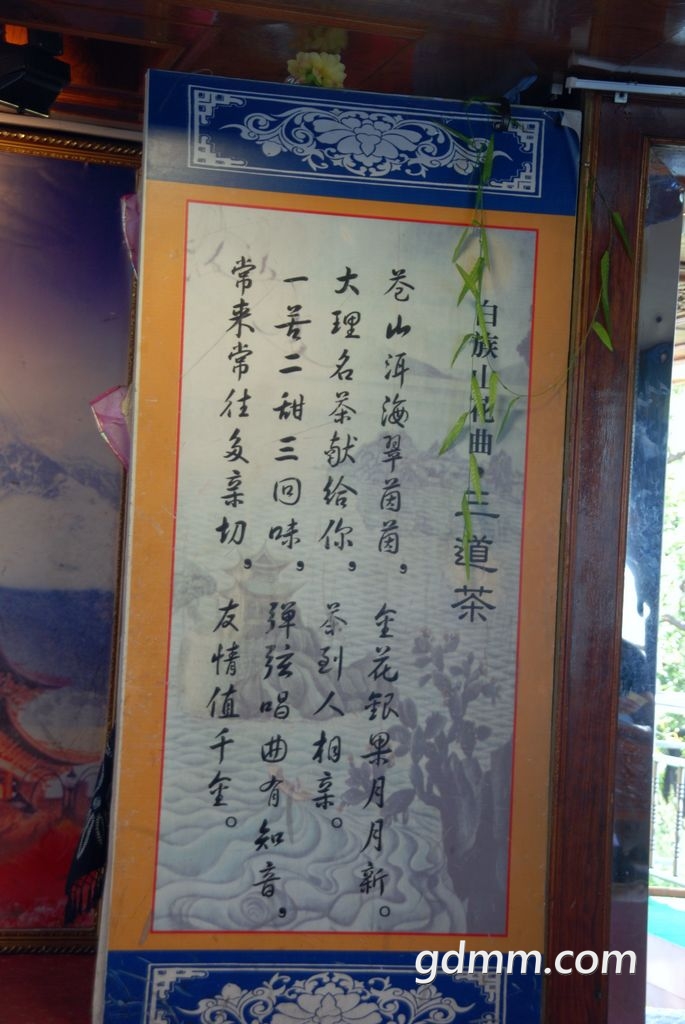 白族山花曲·三道茶
苍山洱海翠茵茵，金花銀果月月新。
大理名茶献给你，茶到人相亲。
一苦二甜三回味，弹弦唱曲有知音，
常来常往多亲切，友情值千金。
gdmm.com